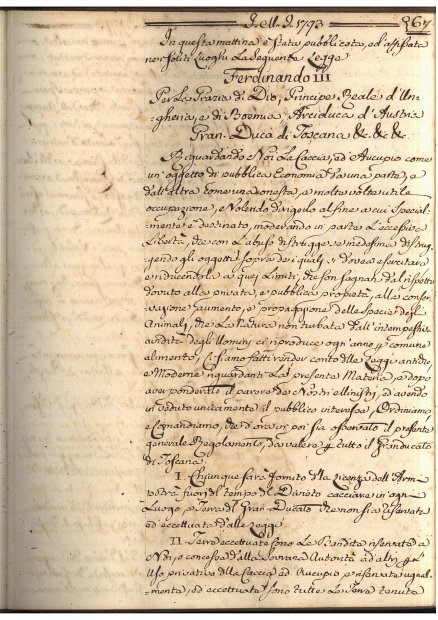 Dell. 9. 1793
267
In questa mattina è stata pubblicata, ed affissa
nei soliti Luoghi La Seguente Legge
Ferdinando III
Per La Grazia di Dio, Principe Reale d'Un-
gheria, e di Boemia, Arciduca d'Austria
Gran-Duca di Toscana &c. &c. &c.
Riguardando Noi La Caccia, ed Aucupio come
un oggetto di pubblica Economia da una parte, e
dall'altra come una onesta, e molte volte utile
occupazione, e Volendo dirigerlo al fine a cui special-
mente è destinato, moderando in parte L'eccessiva
Libertà, che con L'abuso distrugge se medesima distrug-
gendo gli oggetti sopra dei quali dovea esercitarsi
e riducendola a quei Limiti, che son segnati dal rispetto
dovuto alla privata, e pubblica proprietà, alla conser-
vazione aumento, e propagazione delle specie degli
Animali, che La Natura non turbata dall'intempestiva
avidità degli Uomini ci riproduce ogni anno p comune
alimento, Ci siamo fatti render conto delle Leggi antiche,
e Moderne riguardanti La presente Materia, e dopo
aver ponderato il parere dei Nostri Ministri, ed avendo
in veduta unicamente il pubblico interesse, Ordiniamo
e Comandiamo, che d'ora in poi sia osservato il presente
generale Regolamento, da valere p tutto il Granducato
di Toscana
I. Chiunque sarà fornito della Licenza dell'Armi
potrà fuori del tempo di Divieto cacciare in ogni
Luogo, e Terra del Gran-Ducato che non sia riservata
ed eccettuata dalle Leggi
II. Terre eccettuate sono Le Bandite riservate a
Noi, o concesse dalla Sovrana Autorità ad altri p
Uso privativo della Caccia, ed Aucupio e riservate ugual-
mente, ed eccettuate sono tutte Le Terre tenute